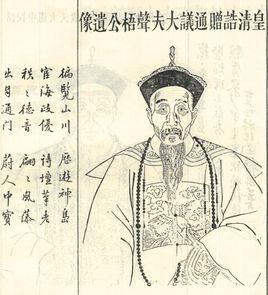 皇清誥贈通議大夫聲梧公遺像
徧覽山川 歷遊神島
宦海政優 詩壇筆老
秩々德音 翩々風藻
出自通門 蔚人中寶